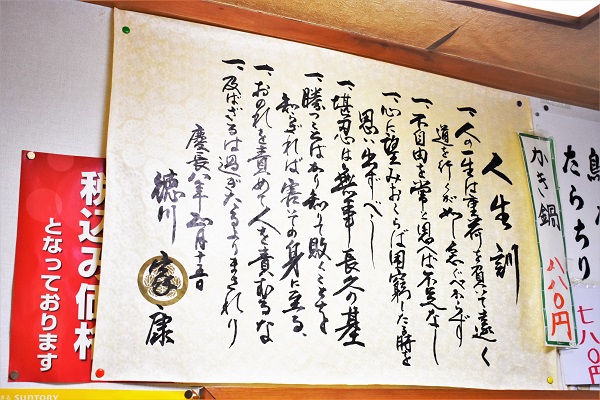 人生訓
一、人の一生は重荷を負て遠く
道を行くが如し急ぐべからず
一、不自由を常と思へば不足なし
一、心に望みおこらば困窮した時を
思い出すべし
一、堪忍は無事長久の基
一、勝つことばかり知りて敗くることを
知らざれば害その身に至る、
一、おのれを責めて人を責むるな
一、及ばざるは過ぎたるよりまされり
慶長八年正月十五日
徳川家康
かき鍋
八八〇円
たらちり
七八〇円
税込み価格
となっております
SUNTORY